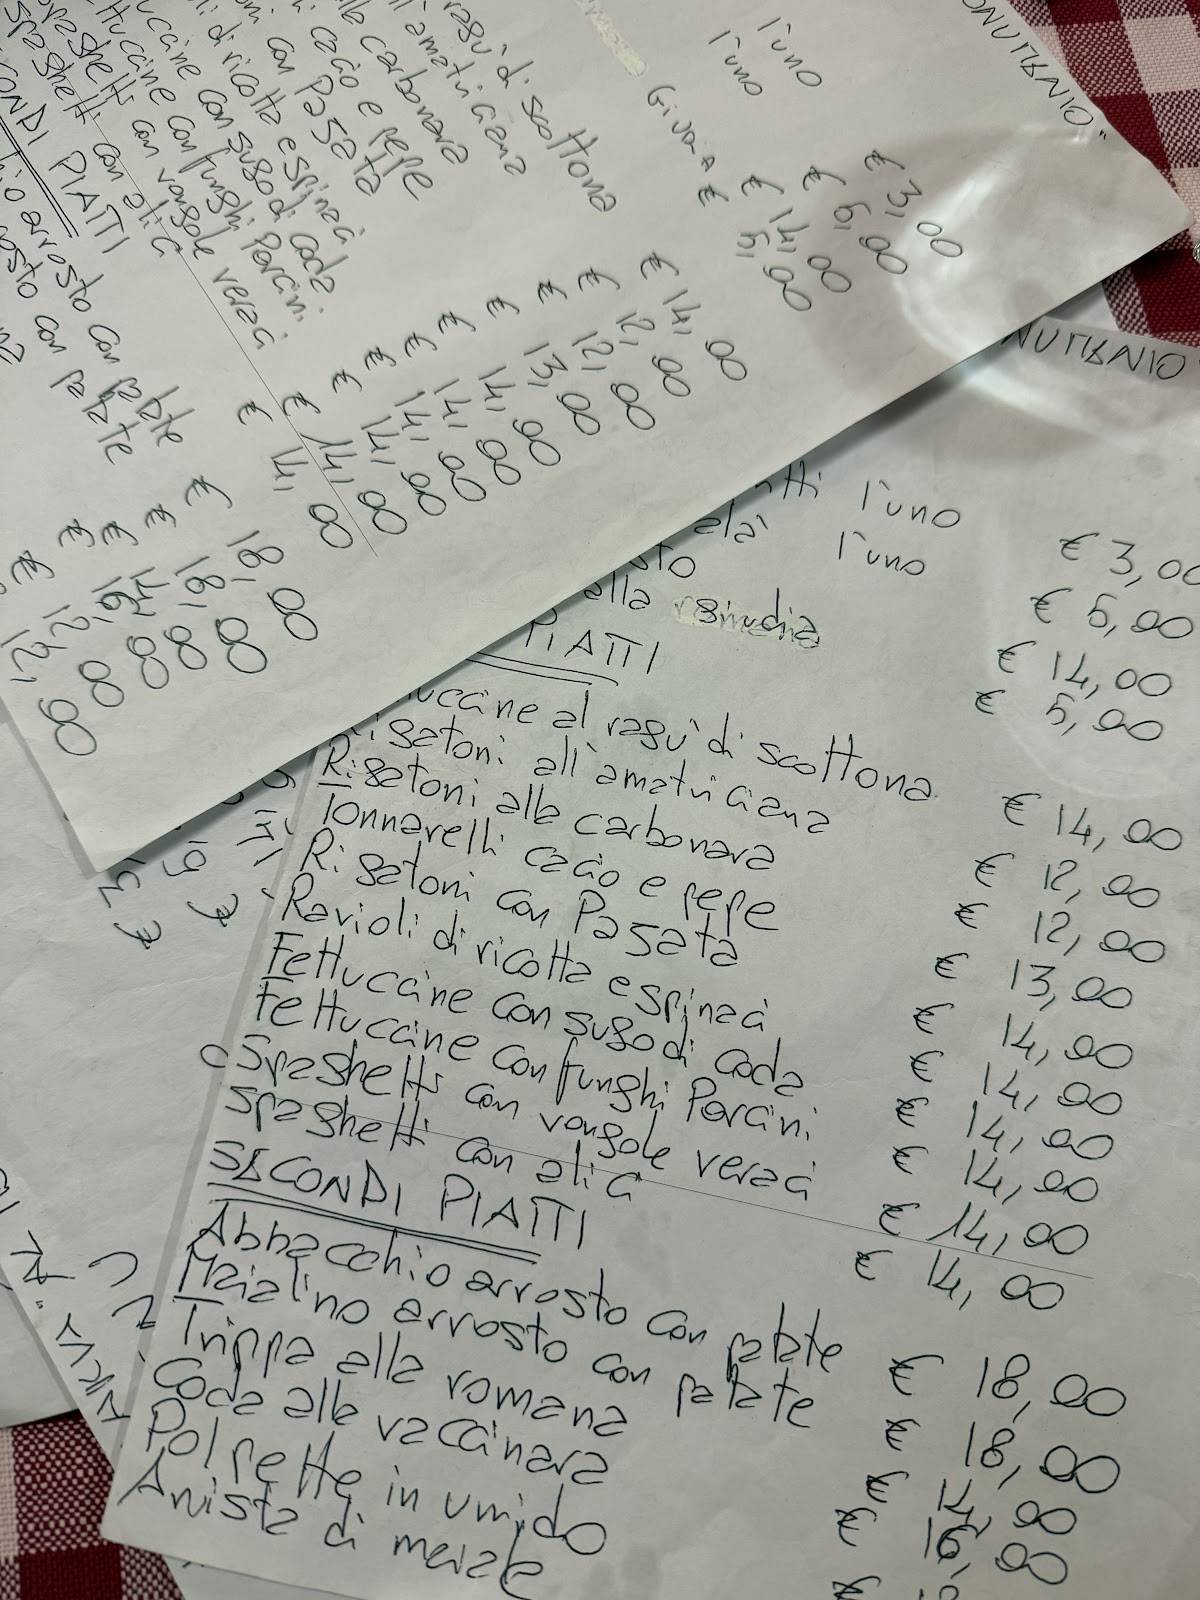 ONUMANIO"
l'uno
l'uno € 3,00
€ 5,00
€ 14,00
Giudia € 5,00
ragù di scottona € 14,00
amatriciana € 12,00
carbonara € 12,00
cacio e pepe € 13,00
con Pasata € 14,00
di ricotta e spinaci € 14,00
con sugo di coda € 14,00
con funghi Porcini € 14,00
spaghetti con vongole veraci € 14,00
spaghetti con alici € 14,00
CONDI PIATTI
arrosto con patate € 18,00
osto con patate € 18,00
€ 14,00
€ 16,00
€ 12,00
€ 12,00
l'uno € 3,00
l'uno € 5,00
€ 14,00
alla € 5,00
PIATTI
uccine al ragù di scottona € 14,00
Rigatoni all'amatriciana € 12,00
Rigatoni alla carbonara € 12,00
Tonnarelli cacio e pepe € 13,00
Rigatoni con Pasata € 14,00
Ravioli di ricotta e spinaci € 14,00
Fettuccine con sugo di coda € 14,00
Fettuccine con funghi Porcini € 14,00
Spaghetti con vongole veraci € 14,00
Spaghetti con alici € 14,00
SECONDI PIATTI
Abbacchio arrosto con patate € 18,00
Maialino arrosto con patate € 18,00
Trippa alla romana € 14,00
Coda alla vaccinara € 16,00
Polpette in umido €
Arista di maiale